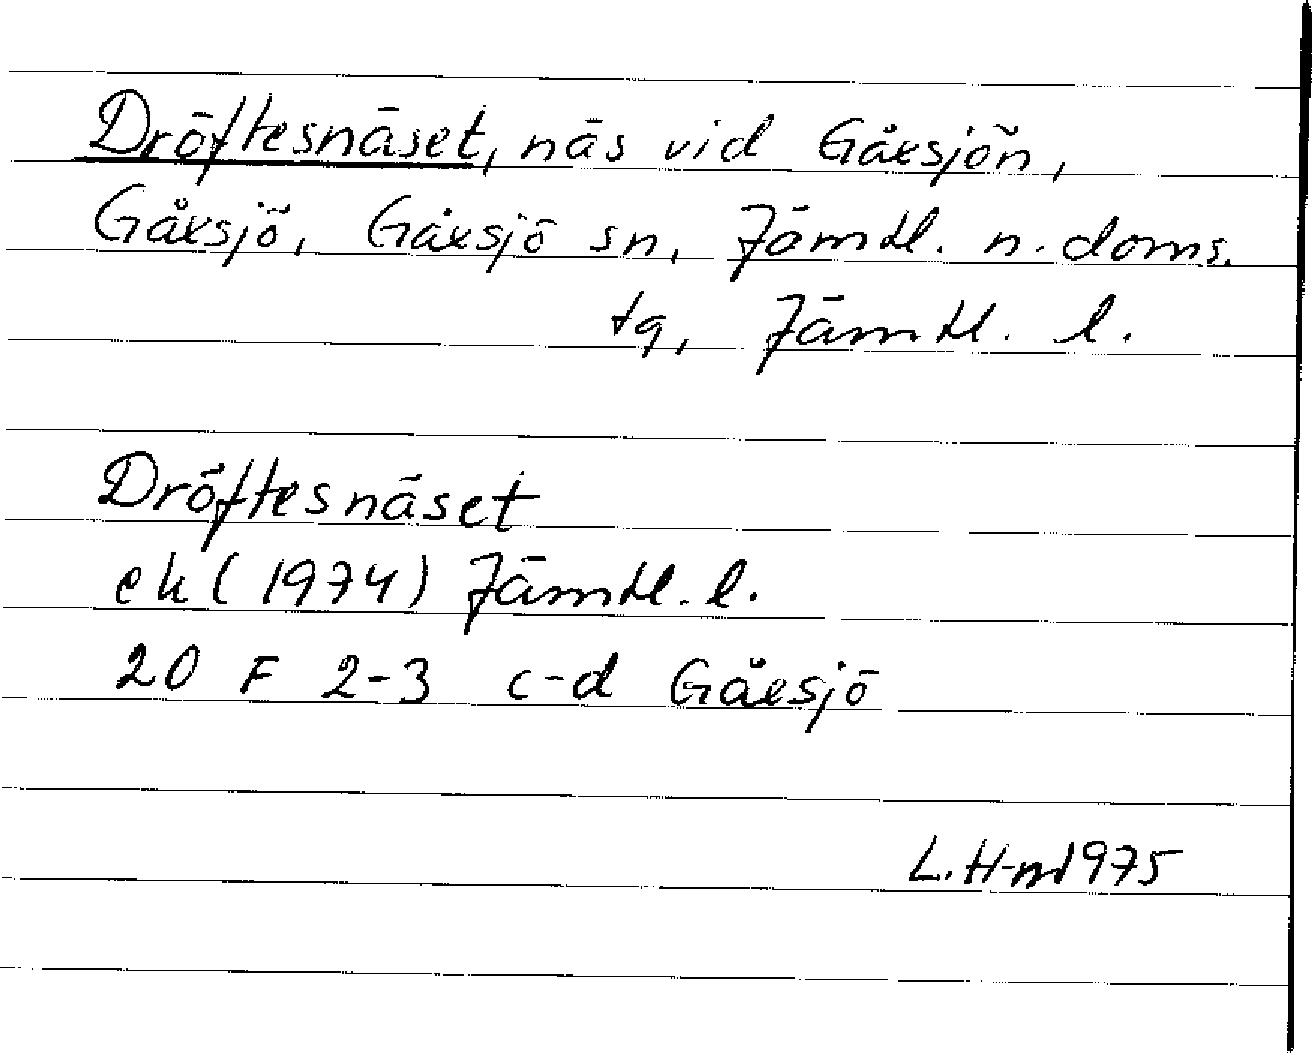 Dröftesnäset, näs vid Gåxsjön,
Gåxsjö, Gåxsjö sn, Jämtl. n. doms.
tg, Jämtl. l.
Dröftesnäset
ek (1974) Jämtl. l.
20 F 2-3 c-d Gåxsjö
L. H-m 1975